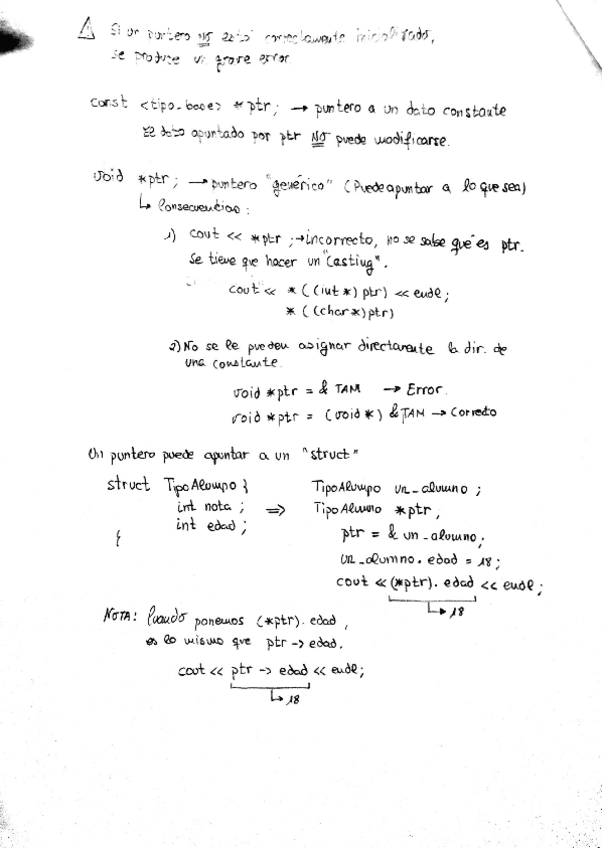 Si un puntero no está correctamente inicializado,
se produce un grave error.
const <tipo-base> *ptr; → puntero a un dato constante
El dato apuntado por ptr NO puede modificarse.
void *ptr; → puntero "genérico" (Puede apuntar a lo que sea)
↳ Consecuencias:
1) cout << *ptr; → incorrecto, no se sabe qué es ptr.
Se tiene que hacer un "casting".
cout << *((int*)ptr) << endl;
*((char*)ptr)
2) No se le pueden asignar directamente la dir. de
una constante.
void *ptr = & TAM → Error.
void *ptr = (void*) &TAM → Correcto
Un puntero puede apuntar a un "struct"
struct TipoAlumno }
int nota;
int edad;
{
⇒
TipoAlumno un_alumno;
TipoAlumno *ptr;
ptr = & un_alumno;
un_alumno.edad = 18;
cout << (*ptr).edad << endl;
↳ 18
NOTA: Cuando ponemos (*ptr).edad,
es lo mismo que ptr -> edad.
cout << ptr -> edad << endl;
↳ 18